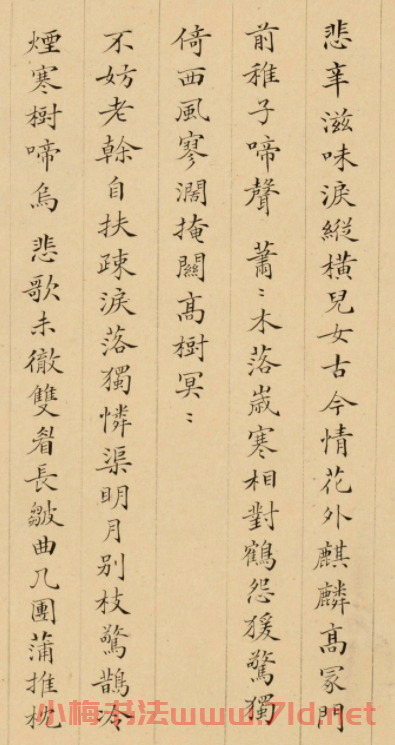 悲辛滋味淚縱橫兒女古今情花外麒麟高冢門
前稚子啼聲 蕭〻木落歲寒相對鶴怨猨驚獨
倚西風寥濶掩關高樹冥〻
不妨老榦自扶疎淚落獨憐渠明月别枝驚鵲冷
煙寒樹啼烏 悲歌未徹雙眉長皺曲几團蒲推枕
小梅书法www.71d.net